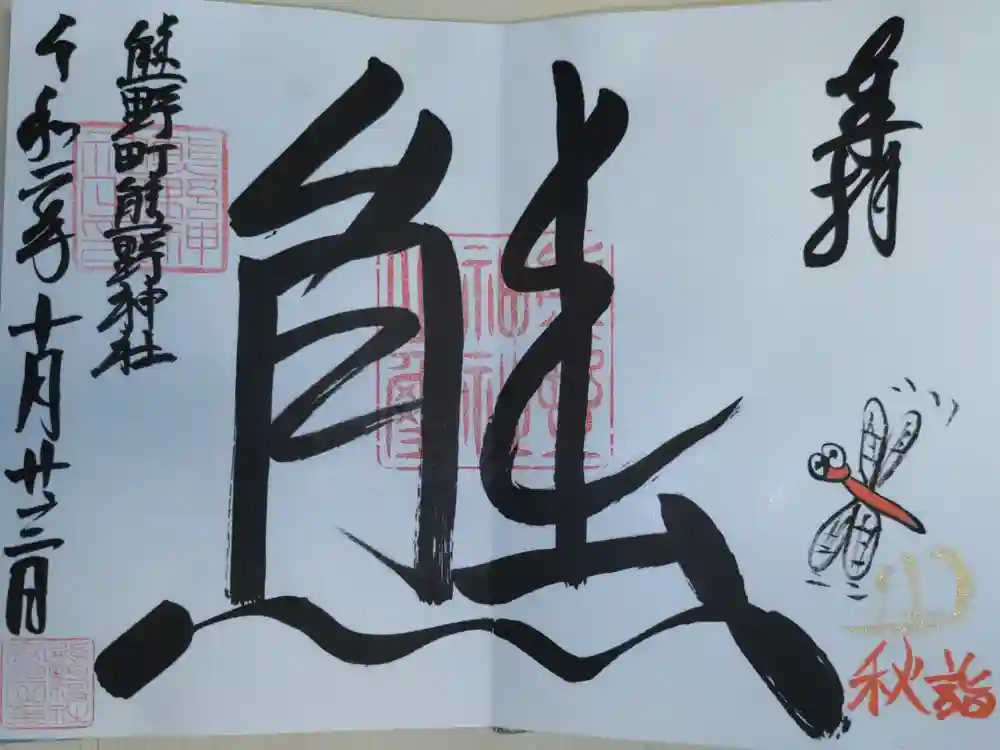 奉拝
秋詣
熊
熊野町熊野神社
令和二年十月廿二日